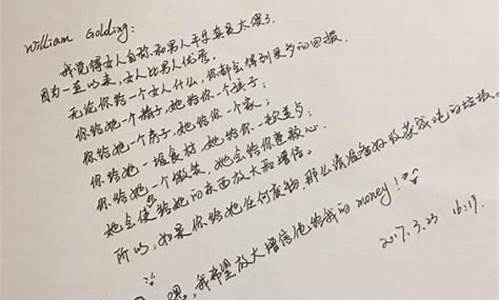 William Golding:
我觉得女人自称和男人平等真是太傻了.
因为一直以来,女人比男人优秀.
无论你给一个女人什么,你都会得到更多的回报.
你给她一个精子,她给你一个孩子;
你给她一个房子,她给你一个家;
你给她一堆食材,她给你一
你给她一个微笑,她会给你整颗心.
她会使给她的东西放大和增倍.
所以,如果你给她任何废物,那么请准备好收获成吨的垃圾.
我希望放大增倍他给我的 money!
2017.3.23 16:19